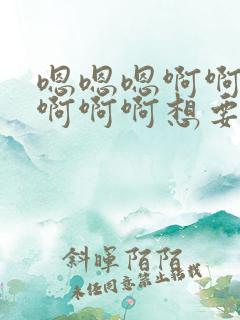 嗯嗯嗯啊啊
啊啊啊想要
斜暉陌陌
未经同意禁止转载